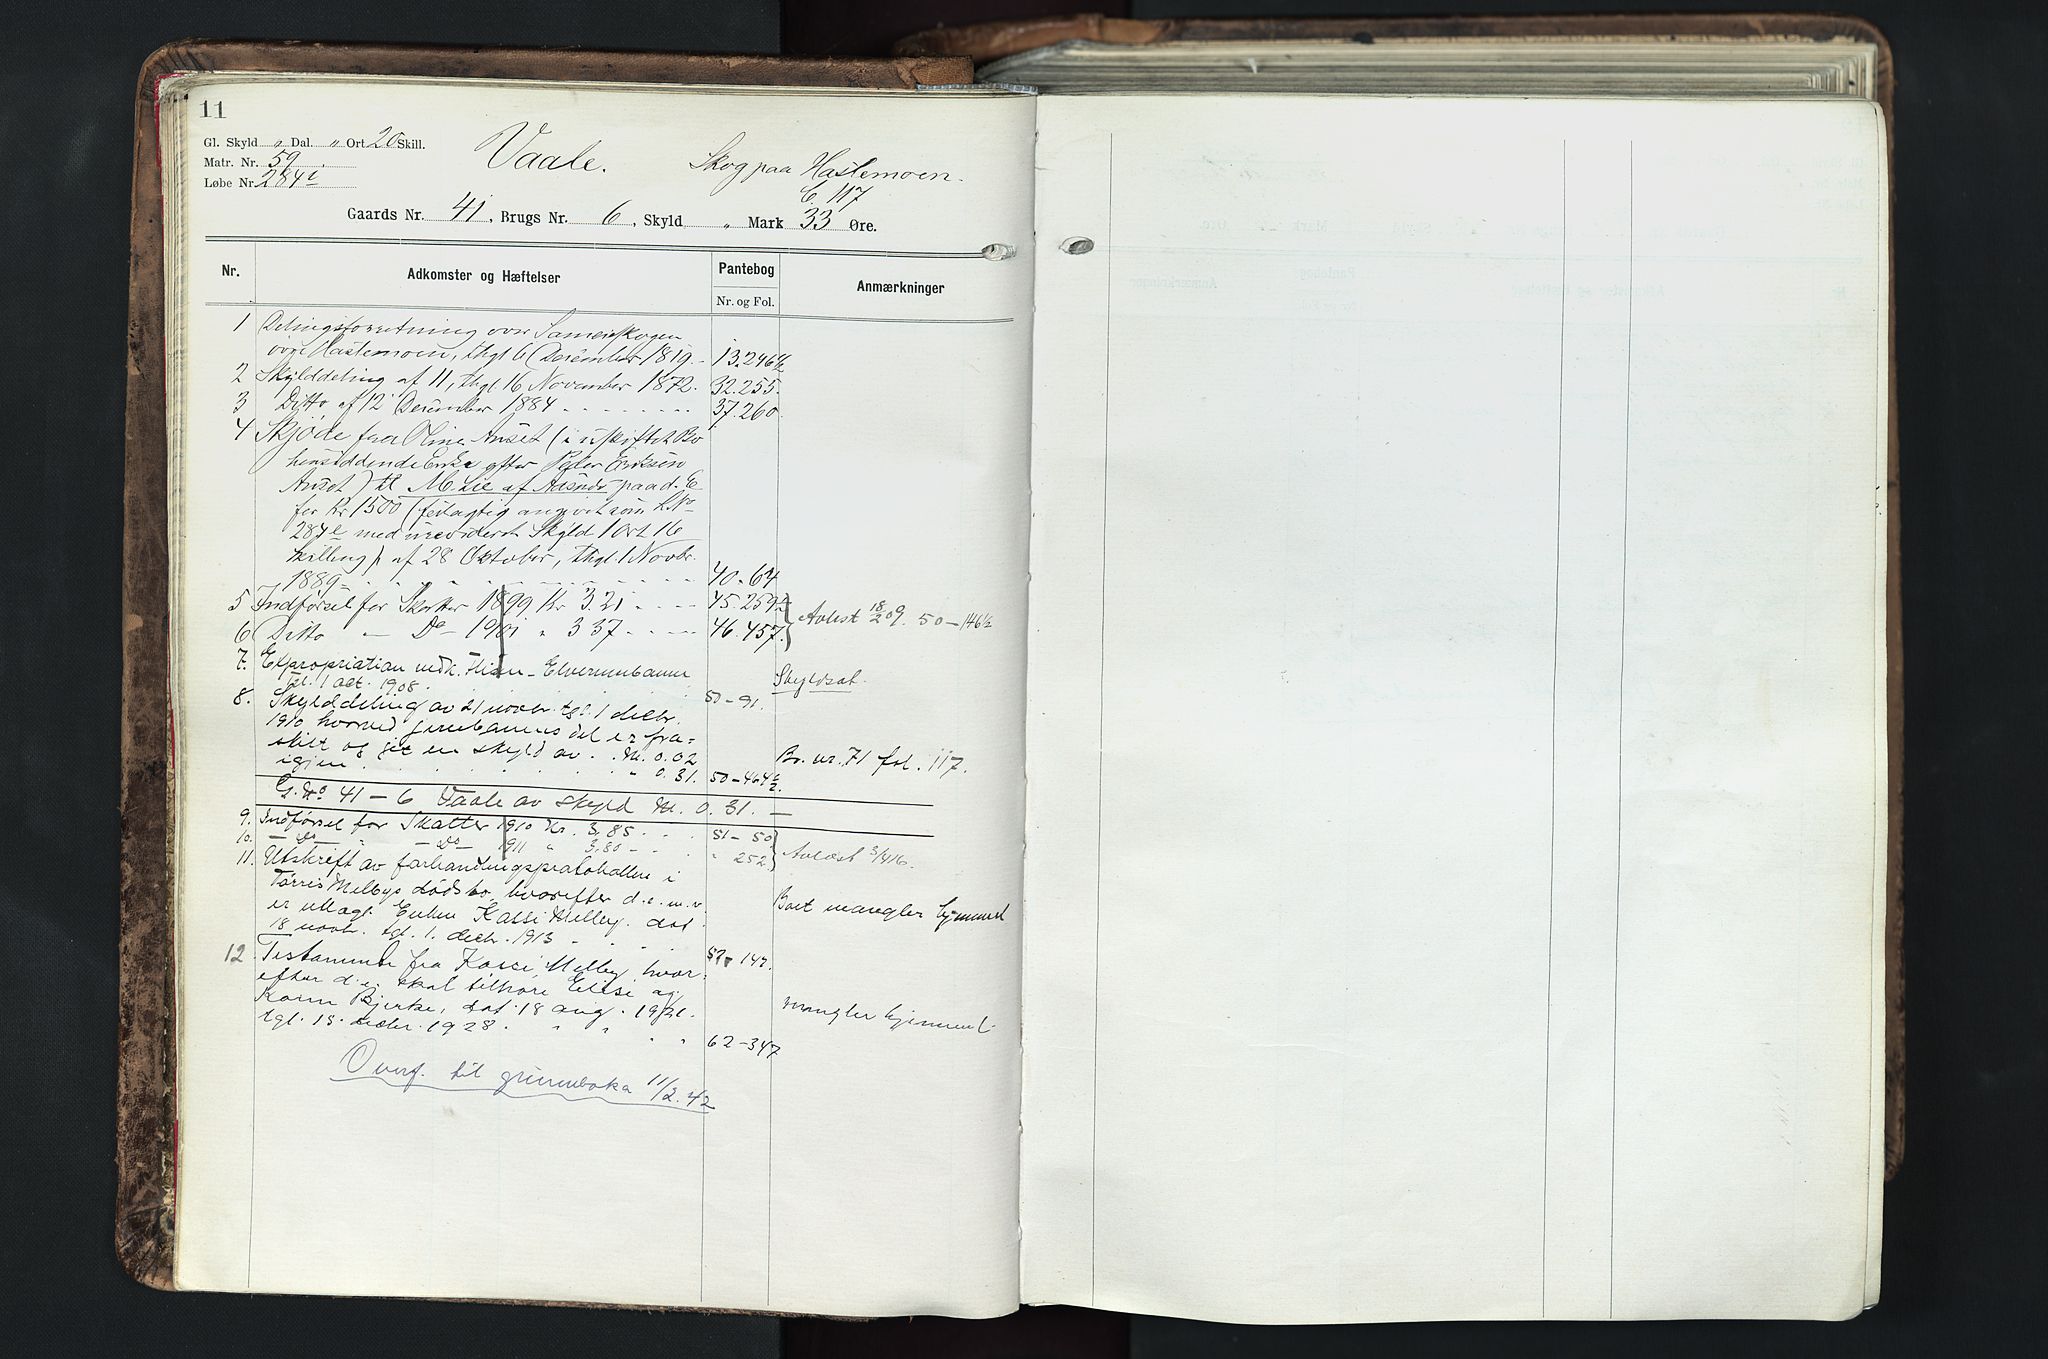 11
Gl. Skyld " Dal. " Ort 20 Skill.
Matr. Nr. 59.
Løbe Nr. 284i
Vaale.
Skog paa Hastemoen.
C. 117
Gaards Nr. 41, Brugs Nr. 6, Skyld " Mark 33 Øre.
Nr. Adkomster og Hæftelser Pantebog Anmærkninger
Nr. og Fol.
1 Delingsforretning over Sameieskogen
øvre Hastemoen, thgl 6 December 1819. 13.246½
2 Skylddeling af 11, thgl 16 November 1872. 32.255.
3 Ditto af 12 December 1884 37.260
4 Skjøde fra Oline Anset (i uskiftet Bo
hensiddende Enke efter Peder Eriksen
Anset) til M. Lie af Aasnes paa d. E
for Kr 1500 (feilagtig angivet som LNo
284e med urevideret Skyld 1 Ort 16
skilling) af 28 Oktober, thgl. 1 Novbr.
1889 40-64
5 Indførsel for Skatter 1899 Kr 3.21 45.259
6 Ditto — Do — 1901 " 3 37 46.457. Avlest 18/2 09. 50-146½
7. Expropriation vedk. - Elverumbanen
tgl. 1 oct. 1908. 50-91. Skyldsat.
8. Skylddeling av 21 novbr. tgl. 1 decbr.
1910 hvorved jernbanens del er fra=
skilt og git en skyld av . . M. 0.02 Br. nr. 71 fol. 117.
igjen " 0.31. 50-464½.
G. No 41 - 6 Vaale av skyld M. 0.31. —
9. Indførsel for Skatter 1910 Kr. 3.85 51-50
10. — Do — Do — 1911 " 3.80 " 252 Avlæst 3/4 16.
11. Utskrift av forhandlingsprotokollen i
Tørris Melbys dødsbo, hvorefter d.e. m.v.
er utlagt Enken Kassi Melby. dat Boet mangler hjemmel
18 novbr. tgl. 1. decbr. 1913 57-147.
12 Testamente fra Kassi Melby hvor-
efter d.e. skal tilhøre Elise og
Karen Bjerke, dat. 18 aug. 1921. mangler hjemmel
tgl. 15. decbr. 1928. 62-347
Overf. til grunnboka 11/2.42